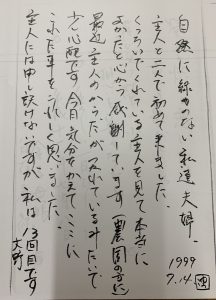 自然に縁のない私達夫婦
主人と二人で初めて来ました。
くつろいでくれている主人を見て本当に
よかったと心から感謝しています(農園の方に)
最近主人のからだが入れているみたいで
少し心配です 今日気分をかえてここに
来た事をうれしく思いました。
主人には申し訳けないですが私は
13回目です
大野
1999
7.14